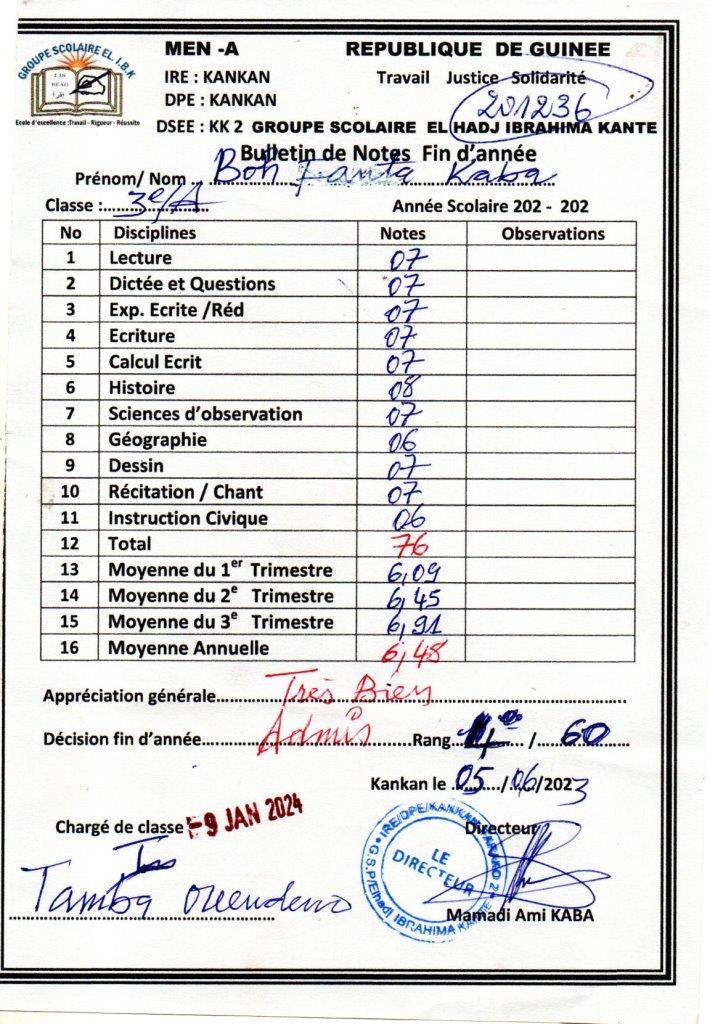 GROUPE SCOLAIRE EL I.B.K
LIS
READ
إقرأ
Ecole d'excellence :Travail - Rigueur - Réussite
MEN -A REPUBLIQUE DE GUINEE
IRE : KANKAN Travail Justice Solidarité
DPE : KANKAN 201236
DSEE : KK 2 GROUPE SCOLAIRE EL HADJ IBRAHIMA KANTE
Bulletin de Notes Fin d'année
Prénom/ Nom ... Boh Fanta Kaba
Classe :..3e/A.. Année Scolaire 202 - 202
No Disciplines Notes Observations
1 Lecture 07
2 Dictée et Questions 07
3 Exp. Ecrite /Réd 07
4 Ecriture 07
5 Calcul Ecrit 07
6 Histoire 08
7 Sciences d'observation 07
8 Géographie 06
9 Dessin 07
10 Récitation / Chant 07
11 Instruction Civique 06
12 Total 76
13 Moyenne du 1er Trimestre 6,09
14 Moyenne du 2e Trimestre 6,45
15 Moyenne du 3e Trimestre 6,91
16 Moyenne Annuelle 6,48
Appréciation générale.....Très Bien
Décision fin d'année.....Admis.....Rang..4e../..60..
Kankan le .05../.06./2023
Chargé de classe -9 JAN 2024 Directeur
IRE/DPE/KANKAN
LE
DIRECTEUR
G.S.P/Elhadj IBRAHIMA KANTE
Tamba
Mamadi Ami KABA